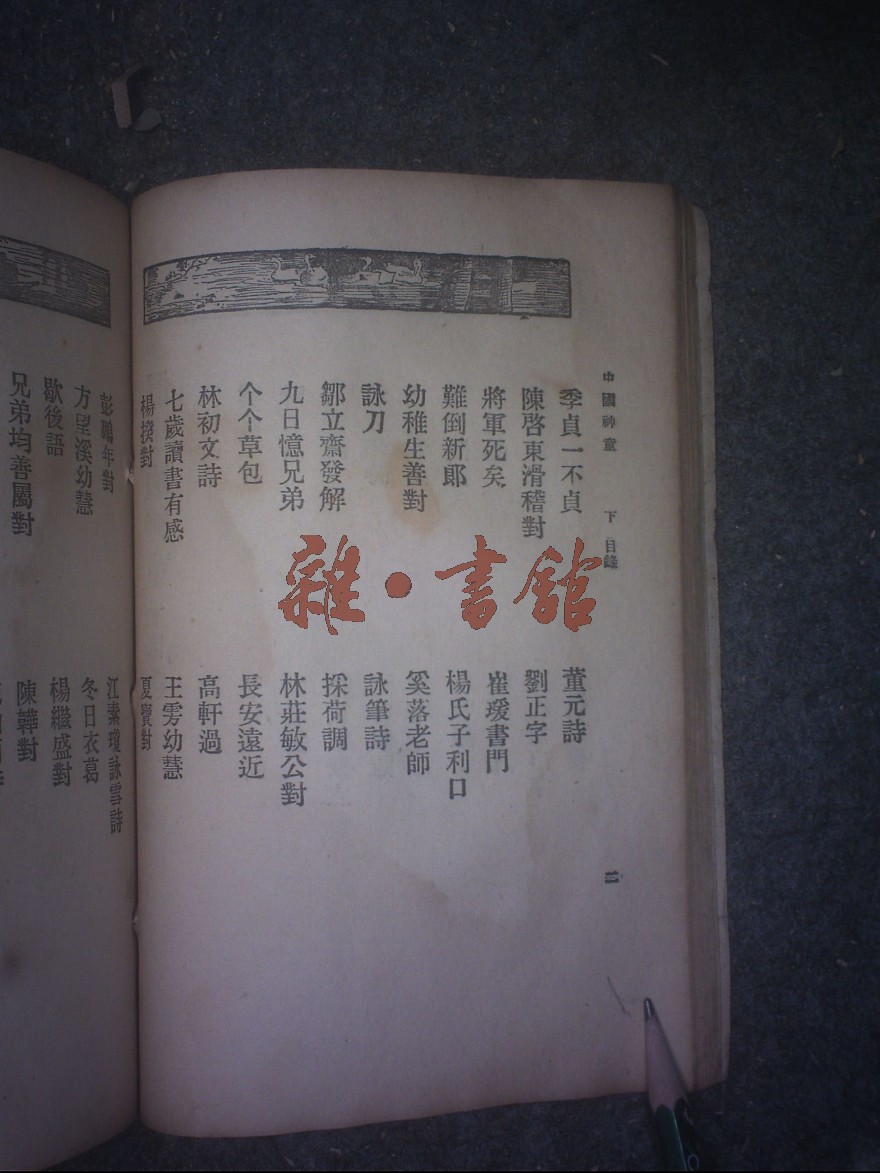 中國神童　下　目錄
二
季貞一不貞
董元詩
陳啓東滑稽對
劉正字
將軍死矣
崔瑗書門
難倒新郎
楊氏子利口
幼稚生善對
奚落老師
詠刀
詠筆詩
鄒立齋發解
採荷調
九日憶兄弟
林莊敏公對
个个草包
長安遠近
林初文詩
高軒過
七歲讀書有感
王雱幼慧
楊揆對
夏寶對
彭鵬年對
江素瓊詠雪詩
方望溪幼慧
冬日衣葛
歇後語
楊繼盛對
兄弟均善屬對
陳韡對
雜·書館